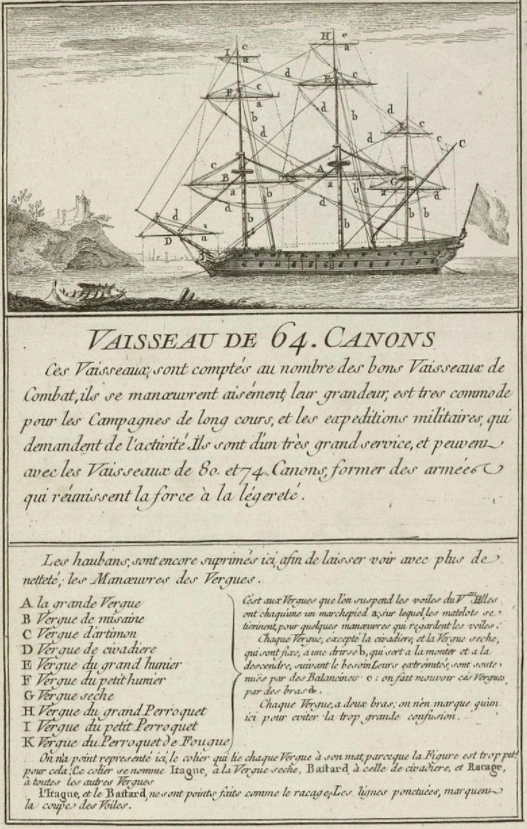 VAISSEAU DE 64. CANONS
Ces Vaisseaux, sont comptés au nombre des bons Vaisseaux de
Combat, ils se manœuvrent aisément, leur grandeur, est tres commode
pour les Campagnes de long cours, et les expeditions militaires, qui
demandent de l'activité. Ils sont d'un très grand service, et peuvent
avec les Vaisseaux de 80. et 74. Canons, former des armées
qui réunissent la force à la légereté.
Les haubans, sont encore suprimés ici, afin de laisser voir avec plus de
netteté; les Manœuvres des Vergues.
A la grande Vergue
B Vergue de misaine
C Vergue d'artimon
D Vergue de civadiere
E Vergue du grand hunier
F Vergue du petit hunier
G Vergue seche
H Vergue du grand Perroquet
I Vergue du petit Perroquet
K Vergue du Perroquet de Fougue
C'est aux Vergues que l'on suspend les voiles du Elles
ont chaquune un marchepied a, sur lequel les matelots se
tiennent, pour quelques manœuvres qui regardent les voiles.
Chaque Vergue, excepté la civadiere, et la Vergue seche,
qui sont fixe, a une drisse b, qui sert a la monter et a la
descendre, suivant le besoin. Leurs extremités, sont soute-
nuës par des Balancines c: on fait mouvoir cés Vergues
par des bras d.
Chaque Vergue, a deux bras, on n'en marque qu'un
ici pour eviter la trop grande confusion.
On n'a point representé ici, le colier qui lie chaque Vergue à son mat, parceque la Figure est trop petite
pour cela; Ce colier se nomme Itague, à la Vergue seche, Bastard à celle de civadiere, et Racage,
à toutes les autres Vergues
l'Itague, et le Bastard, ne sont points faits comme le racage. Les lignes ponctuées, marquent
la coupe des Voiles.